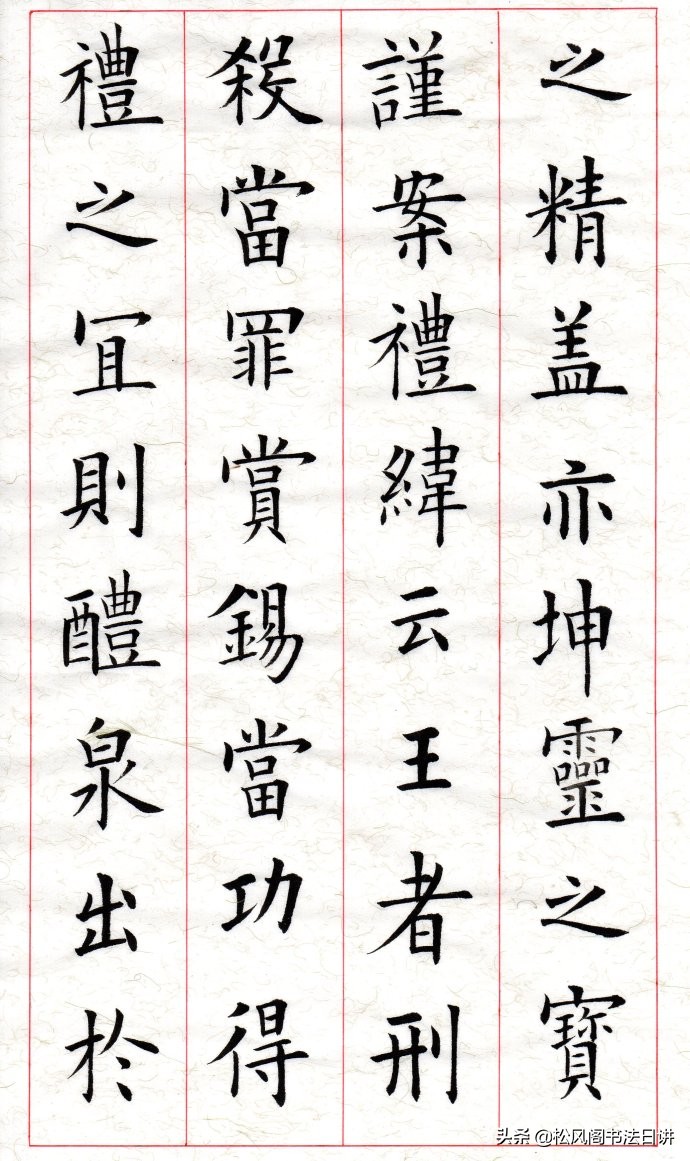 之精盖亦坤靈之寶
謹案禮緯云王者刑
殺當罪賞錫當功得
禮之冝則醴泉出於
头条 @松风阁书法日讲